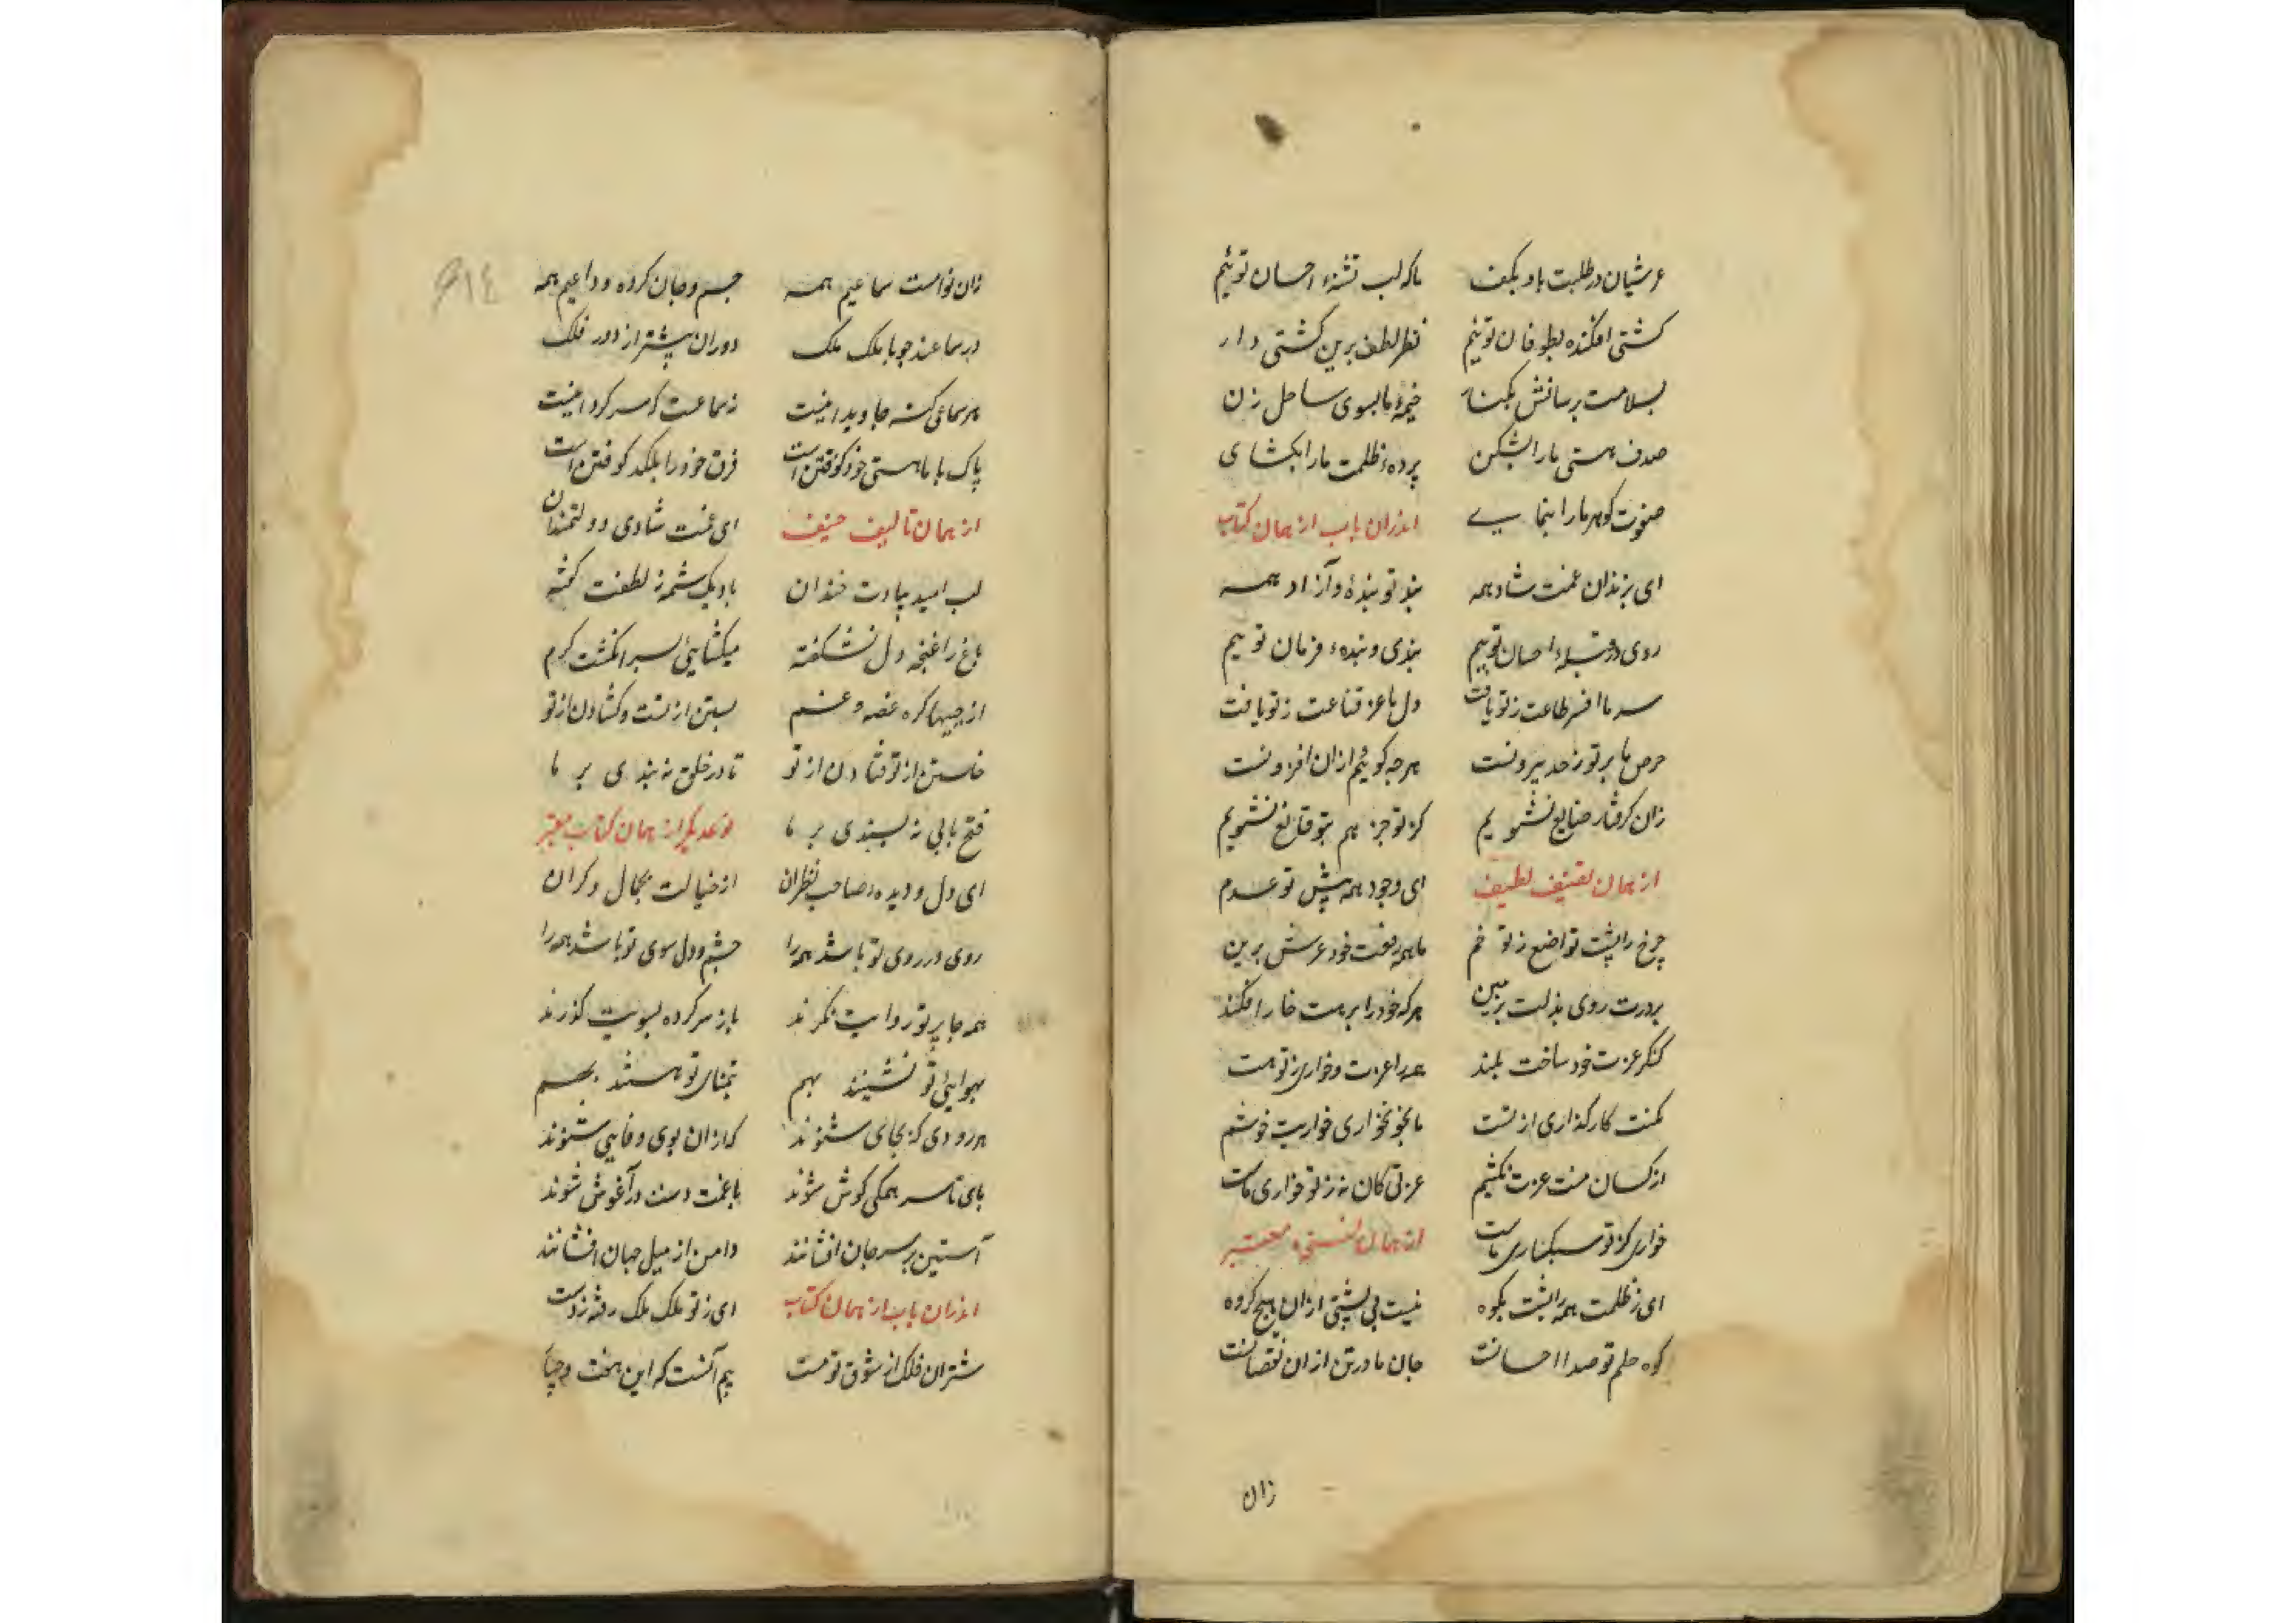 عرشیان در طلبت باد بکف    ما که لب تشنهٔ احسان توئیم
کشتی افکنده بطوفان توئیم    نظر لطف برین کشتی دار
بسلامت برسانش بکنار    خیمهٔ ما بسوی ساحل زن
صدف هستی ما را بشکن    پردهٔ ظلمت ما را بکشای
صفوت گوهر ما را بنمایی    اندران باب از همان کتاب
ای بزندان غمت شاد همه    بند تو بندهٔ و آزاد همه
روی در قبلهٔ احسان توییم    بندی و بندهٔ فرمان توییم
سر ما افسر طاعت ز تو یافت    دل ما عز قناعت ز تو یافت
حرص ما بر تو ز حد بیرونست    هرچه گوئیم ازان افزونست
زان گرفتار صنایع نشویم    کز تو جز هم بتو قانع نشویم
از همان تصنیف لطیف    ای وجود همه پیش تو عدم
چرخ را پشت تواضع ز تو خم    با همه رفعت خود عرش برین
بر درت روی بذلت بزمین    هرکه خود را بر هت خار افکند
کنگر عزت خود ساخت بلند    همه را عزت و خواری ز تو هست
کمنت کارگذاری از تست    ما بخونخواری خواریت خوشیم
از کسان منت عزت نکشیم    عزتی کان نه ز تو خواری ماست
خواری کز تو سبکباری ماست    از همان نسخهٔ معتبر
ای ز ظلمت همه را پشت بکوه    نیست بی پشتی ازان هیچ گروه
کوه حلم تو صدا احسانت    جان ما در تن ازان نقصانت
زان
زان نواست سماعیم همه    جسم و جان کرده وداعیم همه
در سماعند چو با ملک ملک    دوران پیشتر از دور فلک
هر سماعی که نه جاوید اینست    نه سماعست که سرگردانیست
پاک با ما هستی خود کوفتن است    فرق خود را بلکد کوفتن است
از همان تالیف حنیف    ای غمت شادی دولتمندان
لب امید بیادت خندان    باد یک شمه ز لطفت گشته
باغ را غنچهٔ دل نشکفته    میکشایئ بسر انگشت کرم
از جبینها گره غصه و غم    بستن از تست و کشادن از تو
خاستن از تو فتادن از تو    تا در خلق نه بندی بر ما
فتح بابی نه پسندی بر ما    نوعدیگر از همان کتاب معتبر
ای دل و دیدهٔ صاحب نظران    از خیالت بجمال دگران
روی در روی تو باشد همه را    چشم و دل سوی تو باشد همه را
همه جا پرتو روایت نگرند    باز سر کرده بسویت گذرند
بهوایئ تو نشینند بهم    بتمنای تو هستند بهم
هر رودی کز بجای شنوند    که ازان بوی وفایی شنوند
پای تا سر همگی گوش شوند    با غمت دست در آغوش شوند
آستین بر سر جان افشانند    دامن از میل جهان افشانند
اندران باب از همان کتاب    ای ز تو ملک ملک رفته ز دست
شتران فلک از شوق تو مست    بیم آنست که این هفت